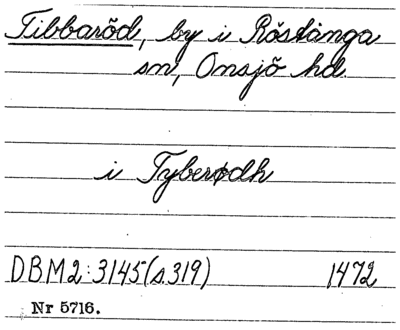 Tibbaröd, by i Röstånga
sn, Onsjö hd
i Tyberødh
DBM2:3145(s.319) 1472
Nr 5716.